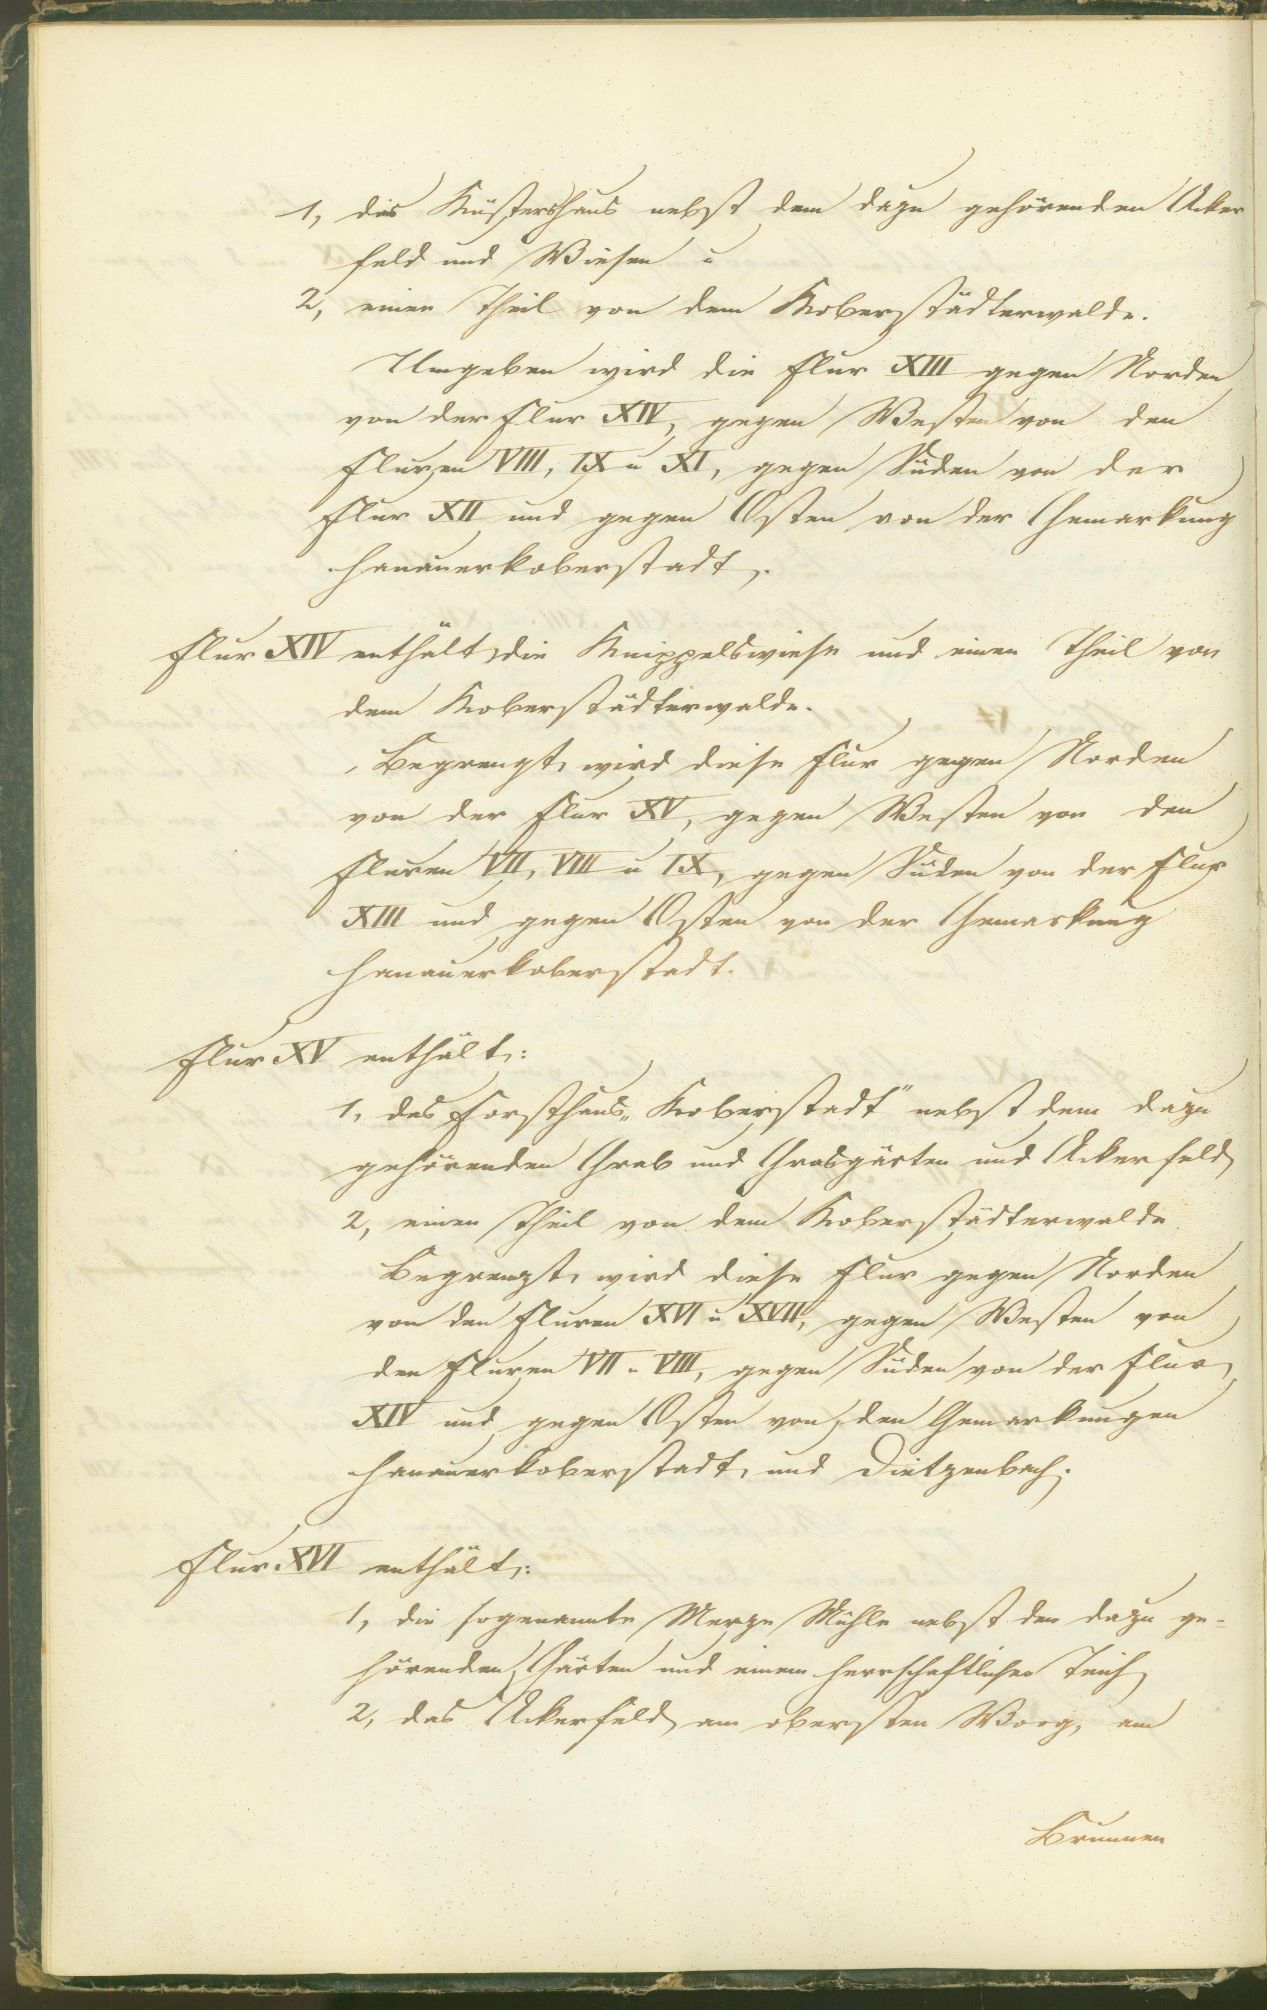 1, das Küstershaus nebst dem dazu gehörenden Acker
feld und Wiesen u
2, einen Theil von dem Koberstädterwalde.
Umgeben wird die Flur XIII gegen Norden
von der Flur XIV, gegen Westen von den
Fluren VIII, IX u XI, gegen Süden von der
Flur XII und gegen Osten von der Gemarkung
Hanauerkoberstadt.
Flur XIV enthält die Knippelswiese und einen Theil von
dem Koberstädterwalde.
Begrenzt wird diese Flur gegen Norden
von der Flur XV, gegen Westen von den
Fluren VII, VIII u IX, gegen Süden von der Flur
XIII und gegen Osten von der Gemarkung
Hanauerkoberstadt.
Flur XV enthält:
1, das Forsthaus „Koberstadt" nebst dem dazu
gehörenden Grab und Grasgärten und Ackerfeld
2, einen Theil von dem Koberstädterwalde
Begrenzt wird diese Flur gegen Norden
von den Fluren XVI u XVII, gegen Westen von
den Fluren VII u VIII, gegen Süden von der Flur
XIV und gegen Osten von den Gemarkungen
Hanauerkoberstadt und Dietzenbach.
Flur XVI enthält:
1, die sogenannte Merze Mühle nebst den dazu ge=
hörenden Gärten und einem herrschaftlichen Teich
2, das Ackerfeld am obersten Woog, am
Brunnen